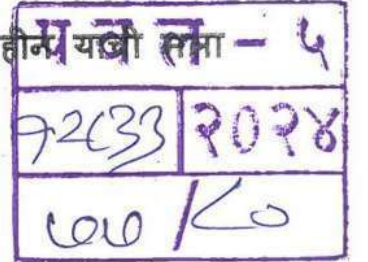 हीन याची
प व ल - ५
१२८३३ २०२४
७७ / ८०